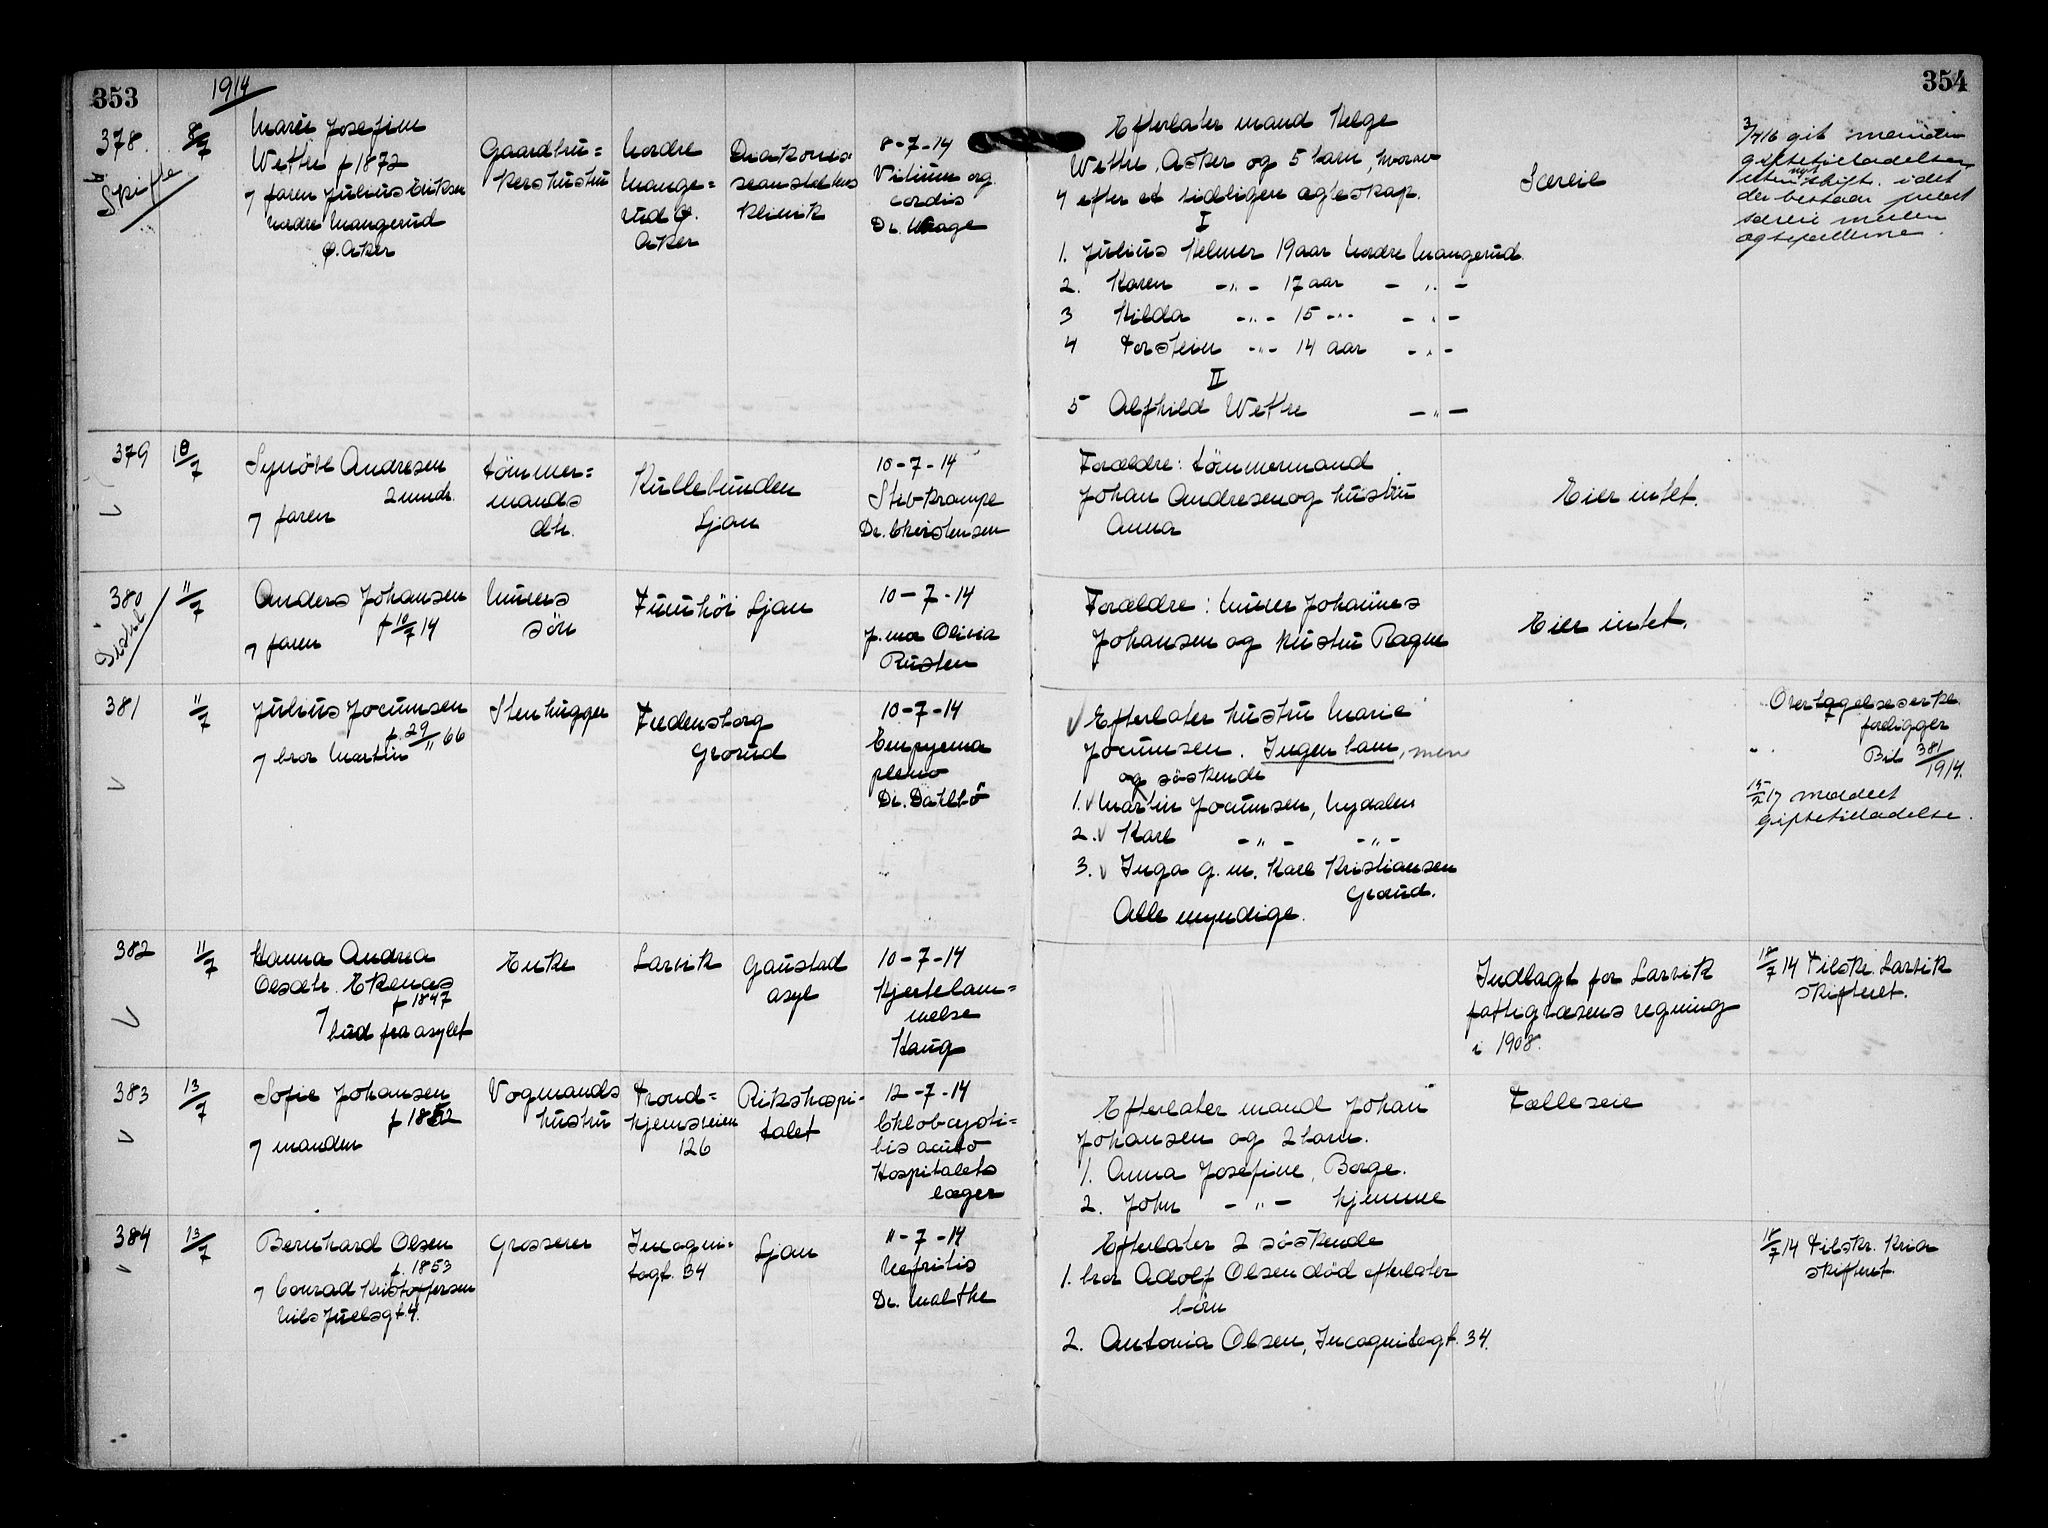 353
1914
354
378.
8/7
Skifte
Marie Josefine
Wettre f 1872
7 faren Julius Eriksen
nordre Mangerud
Ø. Aker
Gaardbru=
kershustru
Nordre
Mange=
rud Ø.
Aker
Diakonis=
seanstaltens
klinik
8-7-14
Vitium org.
cordis
Dr. Waage
Efterlater mand Helge
Wettre, Asker og 5 barn, hvorav
4 efter et tidligere ægteskap.
I
1. Julius Helmer 19 aar Nordre Mangerud.
2. Karen -"- 17 aar - " -
3 Hilda -"- 15 -"- - " -
4 Torstein -"- 14 aar - " -
II
5 Alfhild Wettre - " -
Særeie
3/7 16 git manden
giftetilladelse
uten skifte. idet
nyt
der bestaar fuldt
særeie mellem
ægtefællerne.
379
10/7
Synöve Andresen
2 mndr.
7 faren
tömmer=
mands
dtr.
Kullebunden
Ljan
10-7-14
Stivkrampe
Dr. Christensen
Forældre: tömmermand
Johan Andresen og hustru
Anna
Eier intet.
380
11/7
Anders Johansen
f 10/7 14
7 faren
Murers
sön
Furuhöi Ljan
10-7-14
j.mor Olivia
Rusten
Forældre: Murer Johannes
Johansen og hustru Ragne
Eier intet.
381
11/7
Julius Jocumsen
f. 29/11 66
7 bror Martin
Stenhugger
Fredensborg
Grorud
10-7-14
Empyema
pleuro
Dr. Dahlbö
Efterlater hustru Marie
Jocumsen. Ingen barn, men
og söskende
1. Martin Jocumsen, Nydalen
2. Karl - " - - " -
3. Inga g. m. Karl Kristiansen
Grorud.
Alle myndige.
Overtagelseserkl.
foreligger
Bil 381/1914.
15/2 17 meddelt
giftetilladelse.
382
11/7
Hanna Andrea
Olsdtr. Ekenæs
f 1847
7 bud fra asylet
Enke
Larvik
Gaustad
asyl
10-7-14
Hjertelam=
melse
Haug
Indlagt for Larvik
fattigvæsens regning
i 1908.
18/7 14 Tilskr. Larvik
skifteret.
383
13/7
Sofie Johansen
f 1852
7 manden
Vogmands
hustru
Trond=
hjemsveien
126
Rikshospi=
talet
12-7-14
Chlobcysti=
tis acuto
Hospitalets
læger
Efterlater mand Johan
Johansen og 2 barn.
1. Anna Josefine, Borge.
2. John - " - hjemme
Fælleseie
384
13/7
Bernhard Olsen
f. 1853
7 Conrad Kristoffersen
Nils Juelsgt 4.
Grosserer
Incogni=
togt. 34
Ljan
11-7-14
Nefritis
Dr. Malthe
Efterlater 2 söskende
1. bror Adolf Olsen död efterlater
börn
2. Antonia Olsen, Incognitogt. 34.
18/7 14 Tilskr. Kria
skifteret.